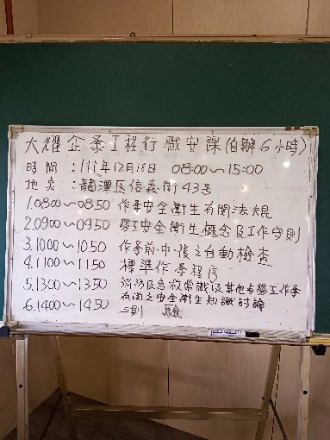 大耀企業工程行 職安課(自辦6小時)
時間:111年12月18日 08:00～15:00
地点:龍潭區信義街43号
1.0800～0850 作業安全衛生有関法規
2.0900～0950 勞工安全衛生概念及工作守則
3.1000～1050 作業前、中、後之自動檢查
4.1100～1150 標準作業程序
5.1300～1350 消防及急救常識及其他与勞工作業
有関之安全衛生知識討論
6.1400～1450 測 驗